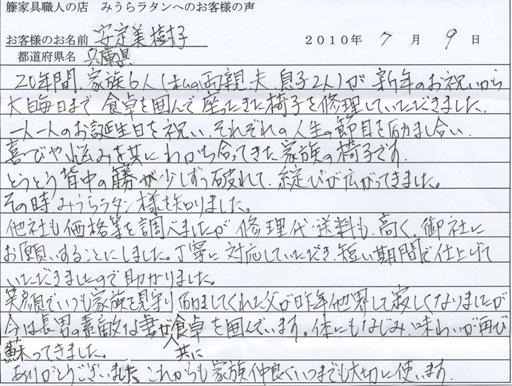 籐家具職人の店 みうらラタンへのお客様の声
お客様のお名前 安定美樹子 2010年 7月 9日
都道府県名 兵庫県
20年間、家族6人(私の両親、夫、息子2人)が新年のお祝いから
大晦日まで食卓を囲んで座ってきた椅子を修理していただきました。
一人一人のお誕生日を祝い、それぞれの人生の節目を励まし合い、
喜びや悩みを共にわかち合ってきた家族の椅子です。
とうとう背中の籐が少しずつ破れて、綻びが広がってきました。
その時みうらラタン様を知りました。
他社も価格等を調べましたが修理代、送料も高く、御社に
お願いすることにしました。丁寧に対応していただき、短い期間で仕上げて
いただきましたので助かりました。
笑顔でいつも家族を見守り励ましてくれた父が昨年他界して寂しくなりましたが
今は長男の素敵な妻が共に食卓を囲んでいます。体にもなじみ、味わいが再び
蘇ってきました。
ありがとうございました。これからも家族仲良くいつまでも大切に使います。